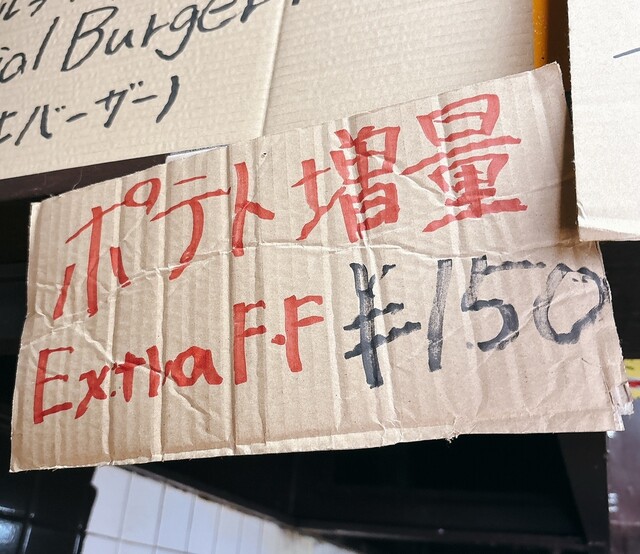 ial Burger
バーザー)
ポテト増量
Extra F.F ¥150